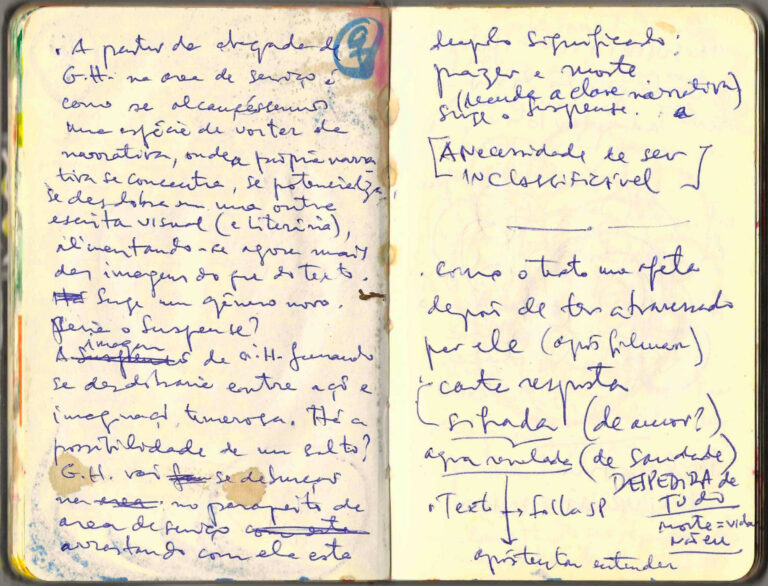 9
. A partir da chegada de
G.H. na area de serviço é
como se alcançéssemos
uma espécie de vortex da
narrativa, onde a própria narra
tiva se concentra, se potencializa,
se desdobra em uma outra
escrita visual (e literária),
alimentando-se agora mais
das imagens do que do texto.
Há Surge um gênero novo.
Seria o Suspense?
imagem
A Suspense de G.H. fumando
se desdobraria entre açõ e
imaginaçõ temerosa. Há a
possibilidade de um salto?
G.H. vai se debruçar
na area no parapeito da
area de serviço com este
arrastando com ela este
duplo significado:
prazer e morte
(decupa a classe narrativa)
Surge o Suspense. a
[A Necessidade de ser
INCLASSIFICÁVEL]
. como o texto me afeta
depois de ter atravessado
por ele (após filmar)
carta resposta
sifrada (de amor?)
agora revelada (de saudade)
DESPEDIDA de
TUDO
. Texto → Folha SP
morte = vida
após tentar entender